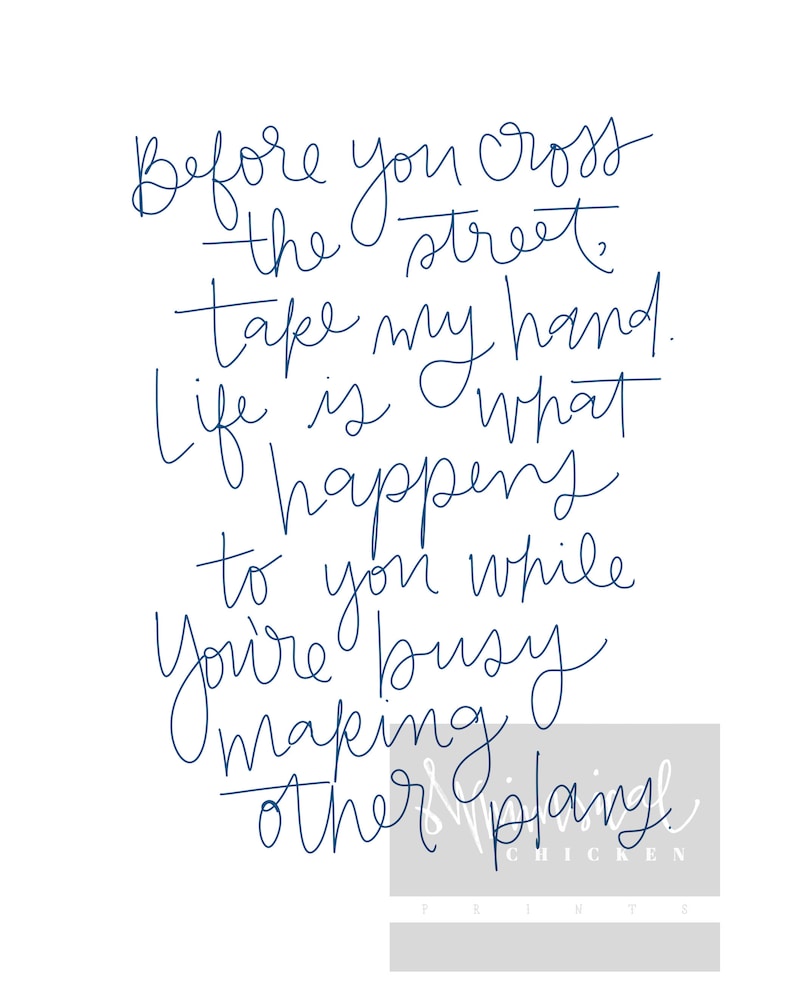 Before you cross
the street,
take my hand.
Life is what
happens
to you while
You're busy
making
other plans.
Whimsical
CHICKEN
PRINTS